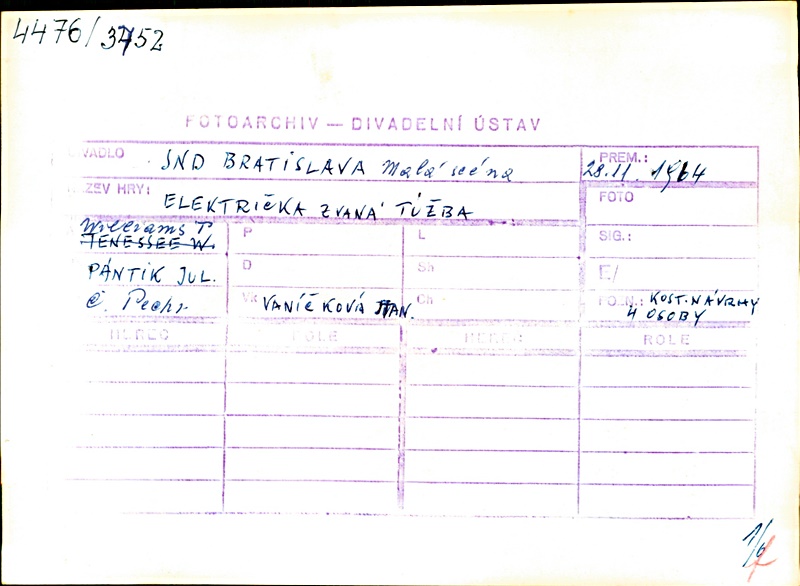 4476/3752
FOTOARCHIV — DIVADELNÍ ÚSTAV
DIVADLO SND BRATISLAVA Malá scéna PREM.:
28.11. 1964
NÁZEV HRY: ELEKTRIČKA ZVANÁ TÚŽBA FOTO
Williams T P L SIG.:
TENESSEE W.
PÁNTIK JUL. D Sb E/
Č. Pechr Vk VANÍČKOVÁ STAN. Ch POZN.: KOST. NÁVRHY
4 OSOBY
HEREC ROLE HEREC ROLE